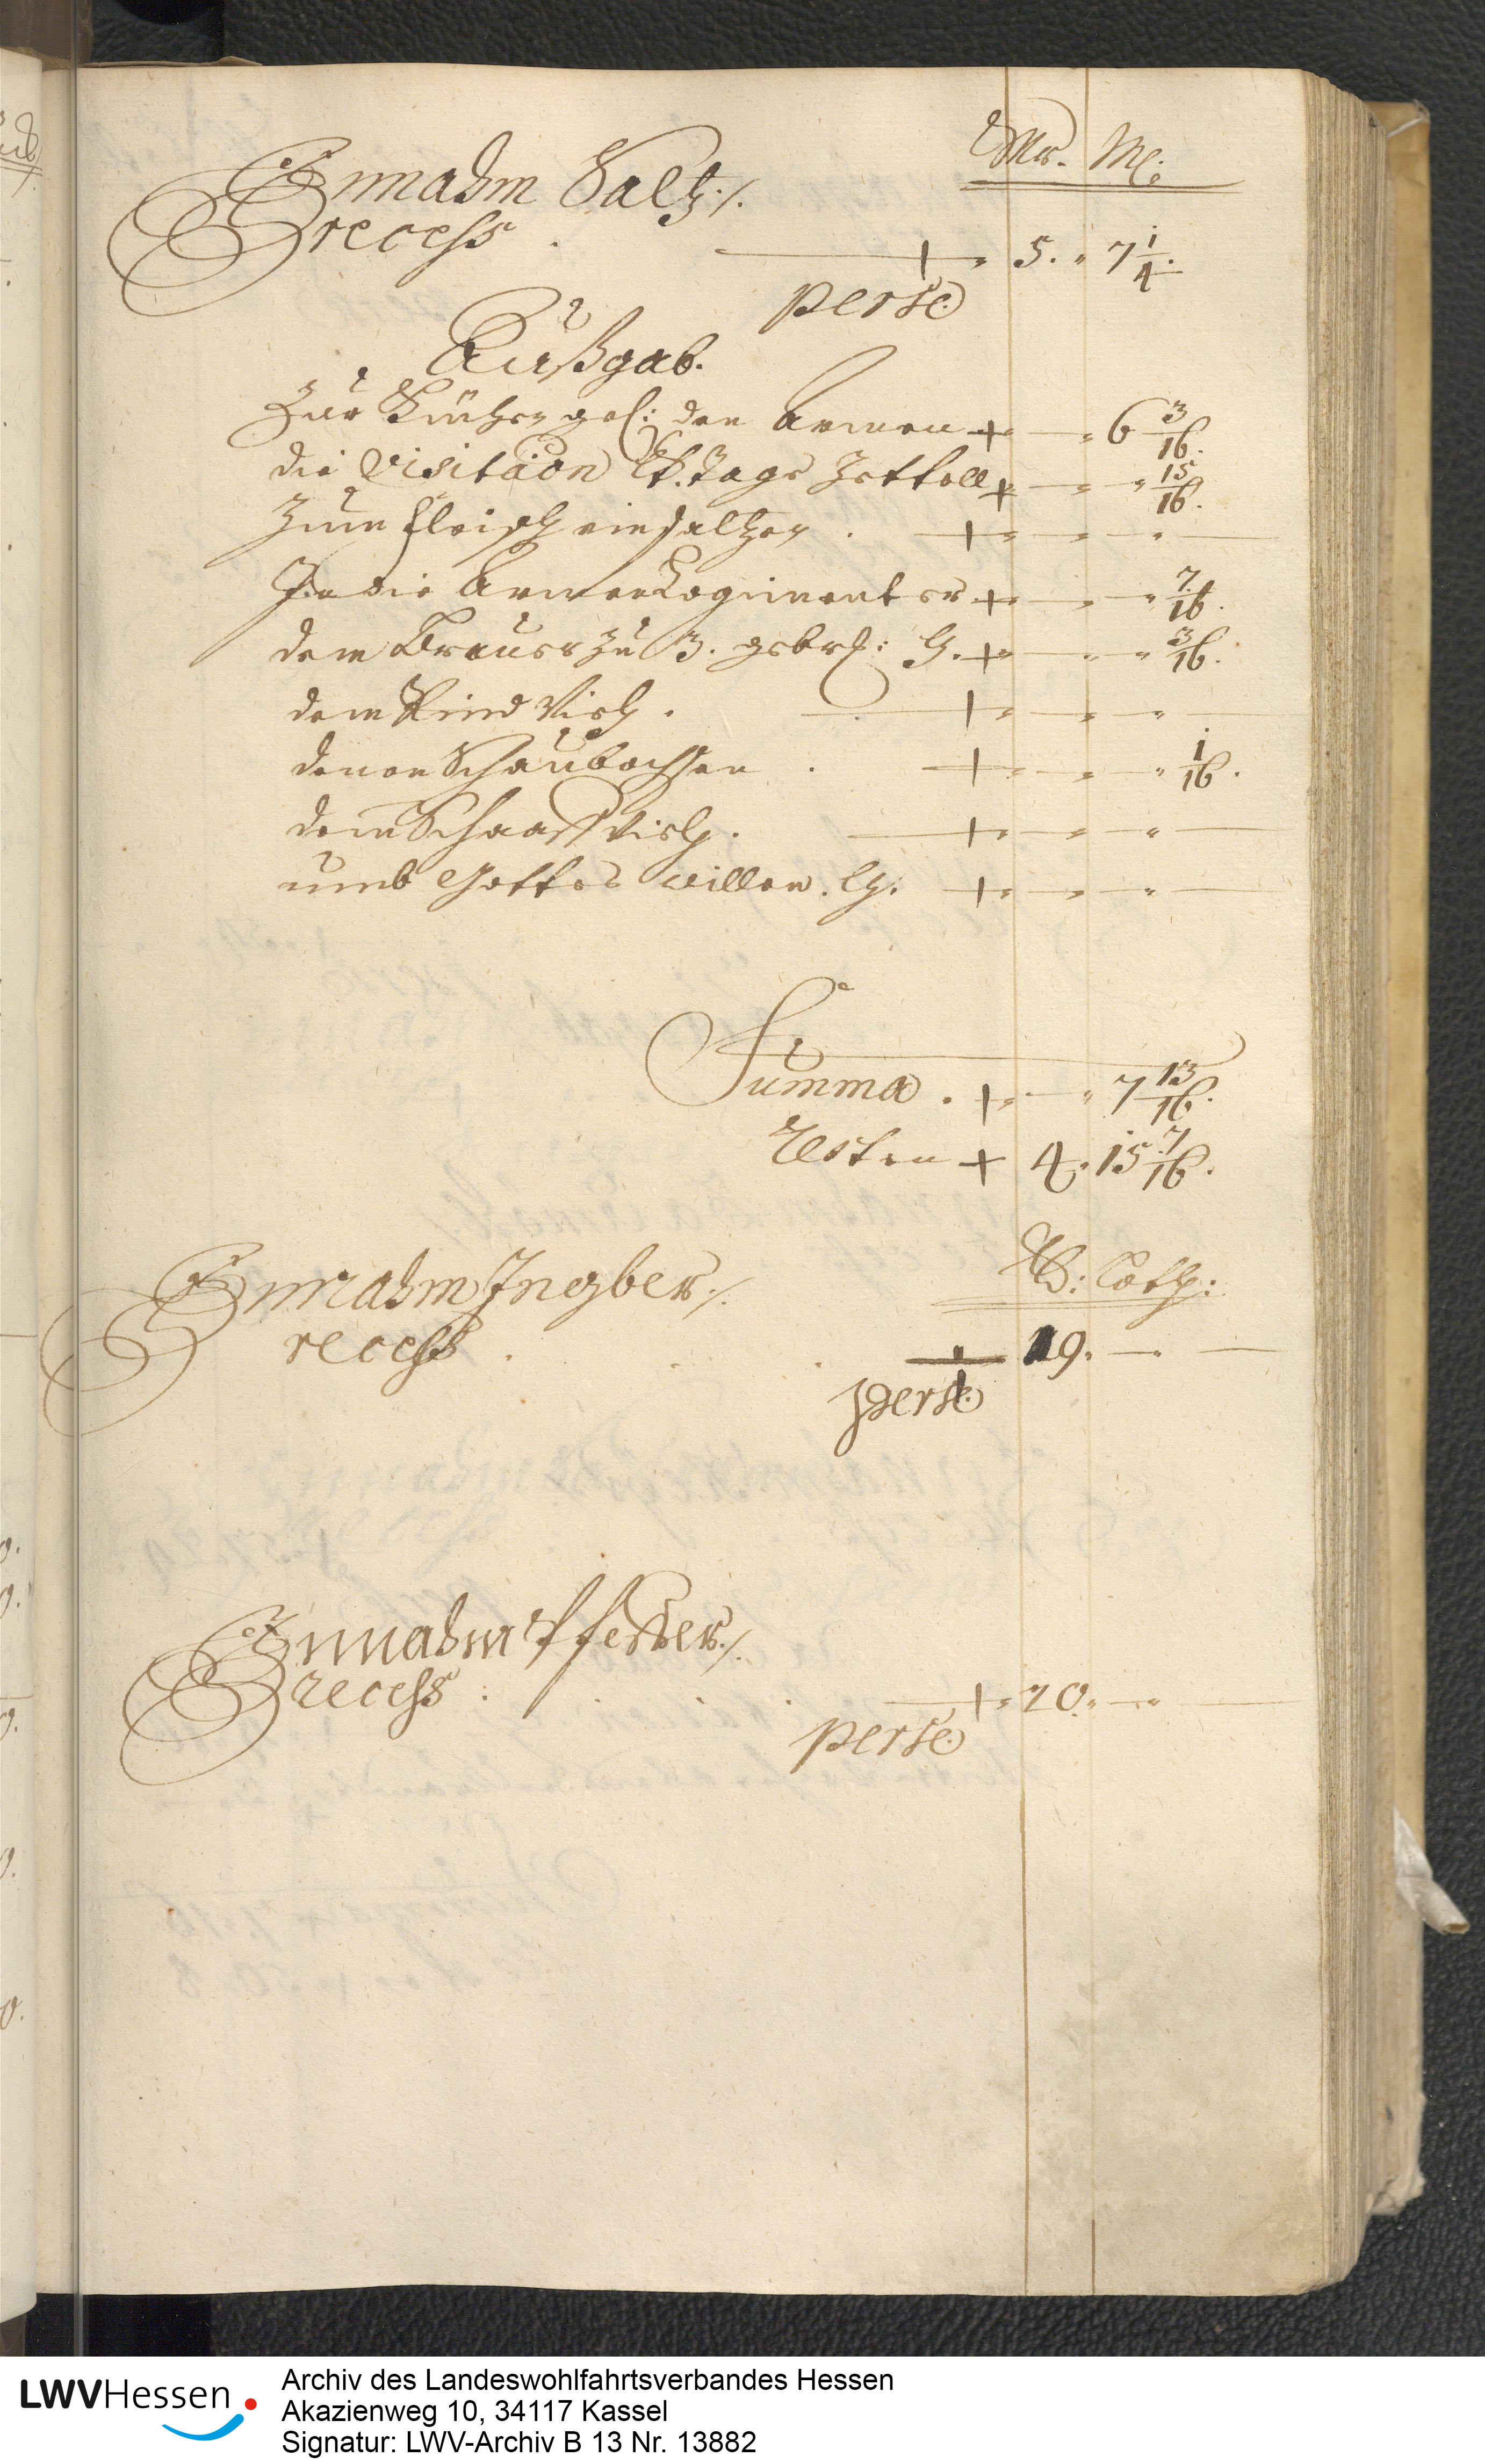 Mr. Me.
Einnahm Saltz ./.
recess . + " 5. " 7 1/4.
perse
Außgab.
Zur Küchen gel: den Armen + " — " 6 3/16.
die Visitāon tags + " — " " 15/16.
Zum fleisch ein saltzen . + " — " — " —
In die Armen Logimenter + " — " " 7/16.
dem Brauer zu 3. gebr: G. + " — " " 3/16.
dem Rind Vieh . + " — " — " —
denen Schaubochsen . + " — " — " 1/16.
dem Schaaff Vieh . + " — " — " —
umb Gottes willen . + " — " — " —
Summa . + " — " 7 13/16.
Resten + 4. 15 7/16.
℔: Loth:
Einnahm Ingber ./.
recess . . . 19. — " —
perse
Einnahm Pfeffer ./.
recess . . . . + " 20. — " —
perse
LWVHessen
Archiv des Landeswohlfahrtsverbandes Hessen
Akazienweg 10, 34117 Kassel
Signatur: LWV-Archiv B 13 Nr. 13882